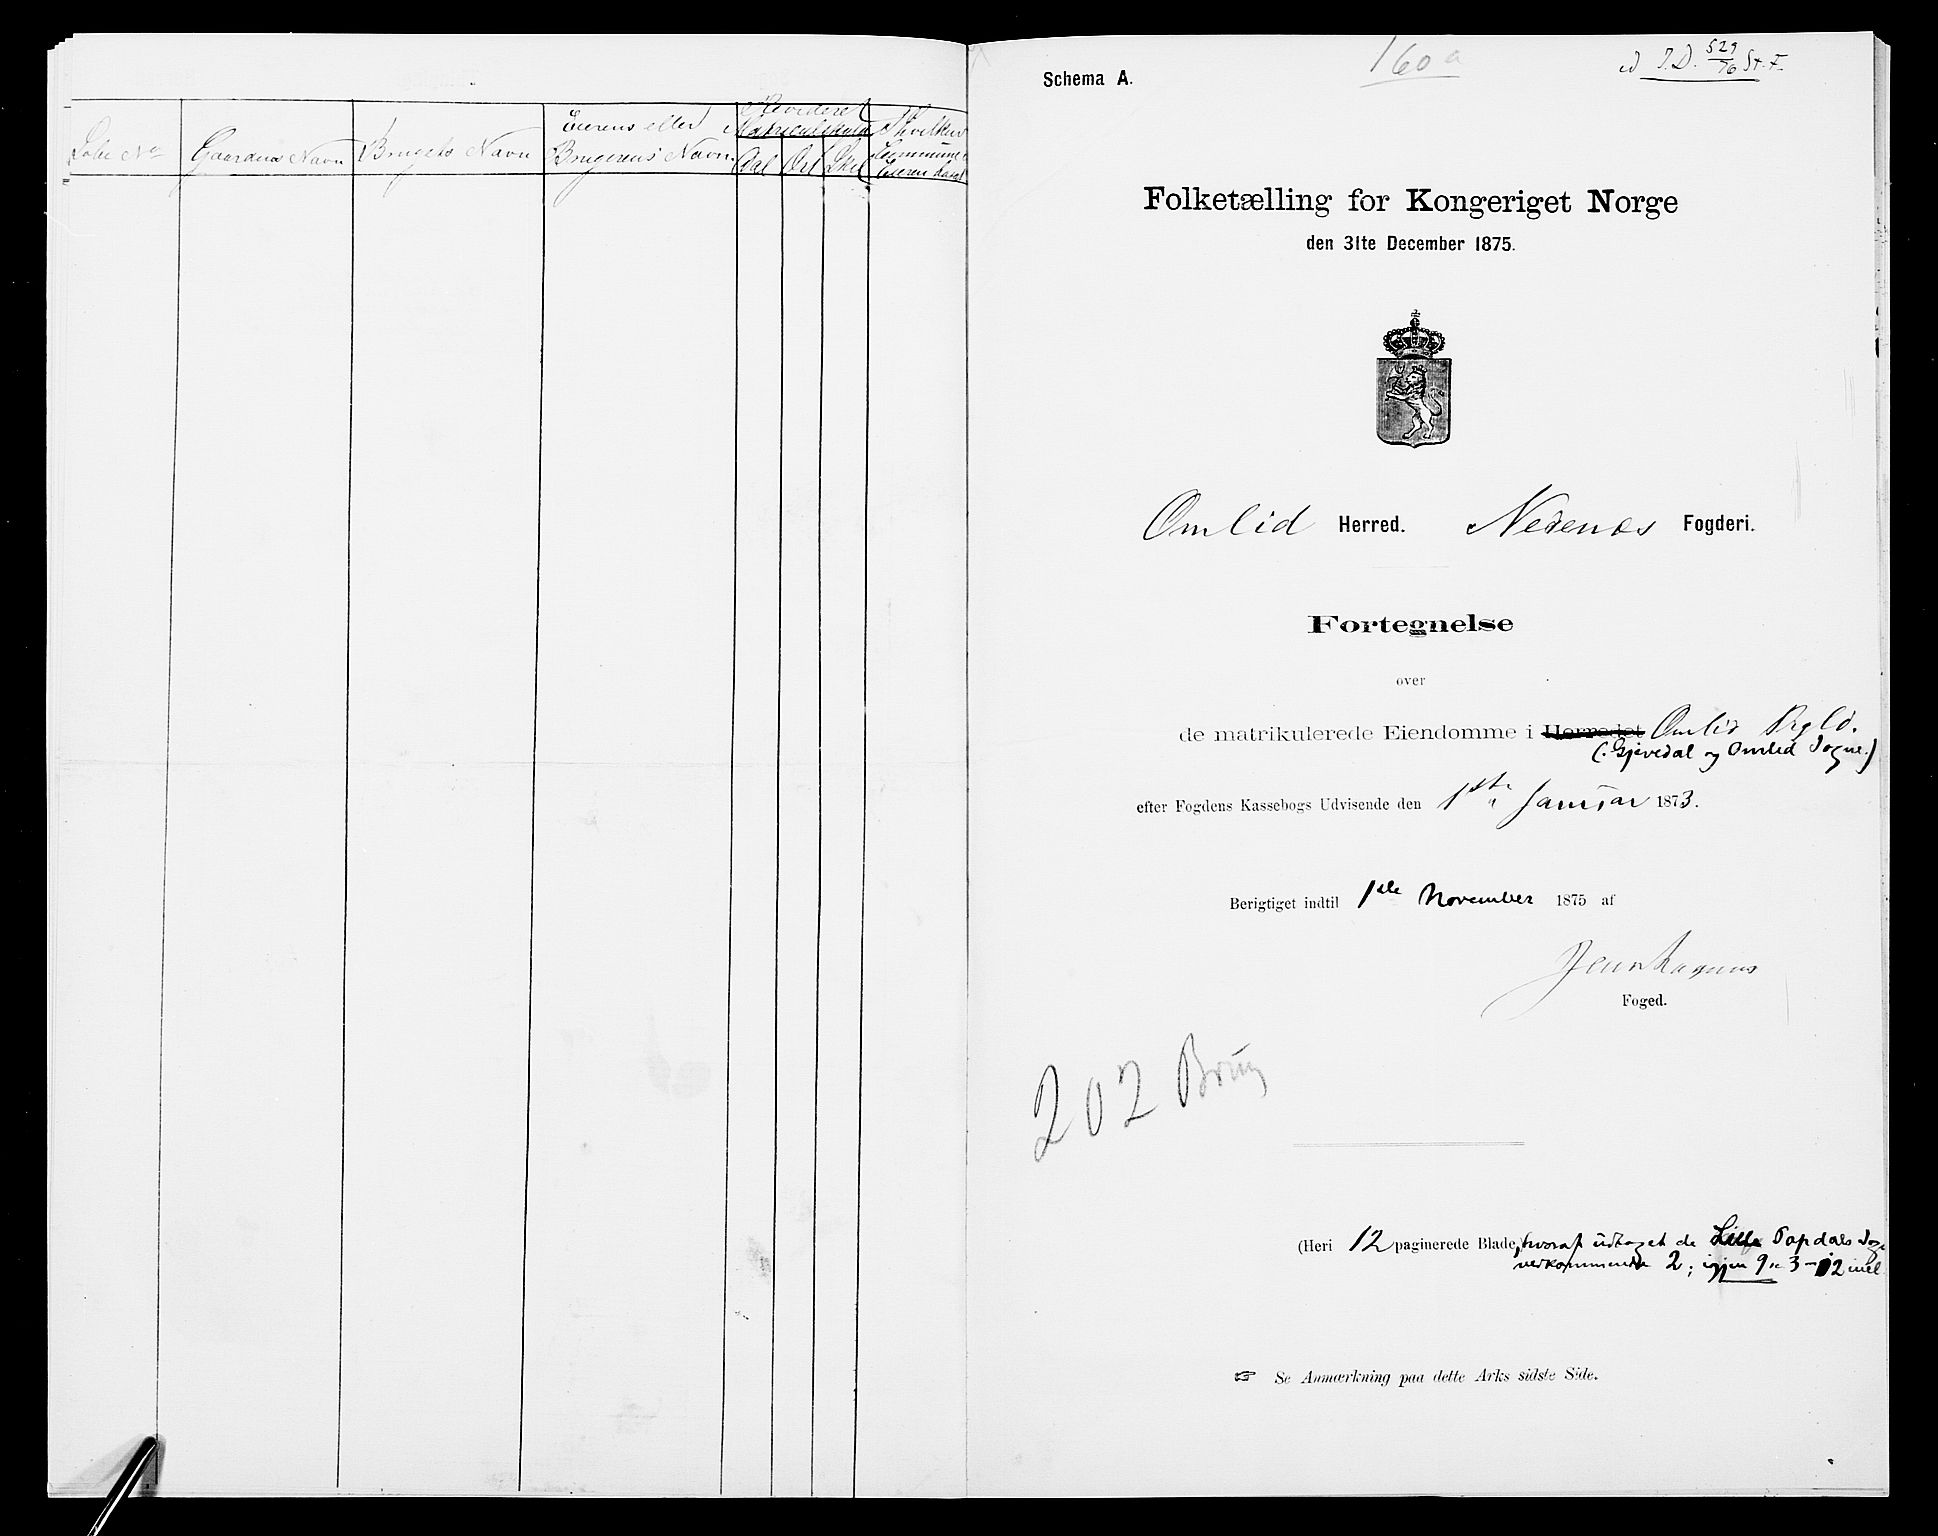 Revideret
Eierens eller Matriculskyld
Løbe No Gaardens Navn Brugets Navn Brugerens Navn. Dal Ort Skil
160 a
J. D. 529/76 St. F.
Schema A.
Folketælling for Kongeriget Norge
den 31te December 1875.
Omlid Herred. Nedenæs Fogderi.
Fortegnelse
over
de matrikulerede Eiendomme i Herredet Omlid Prgld.
(: Gjevedal og Omlid Sogne.)
efter Fogdens Kassebogs Udvisende den 1ste Januar 1873.
Berigtiget indtil 1ste November 1875 af
Foged.
202 Brug
(Heri 12 paginerede Blade, hvoraf udtaget de Lille Topdals Sogn
vedkommende 2; igjen 9 : 3-12 incl
☞ Se Anmærkning paa dette Arks sidste Side.